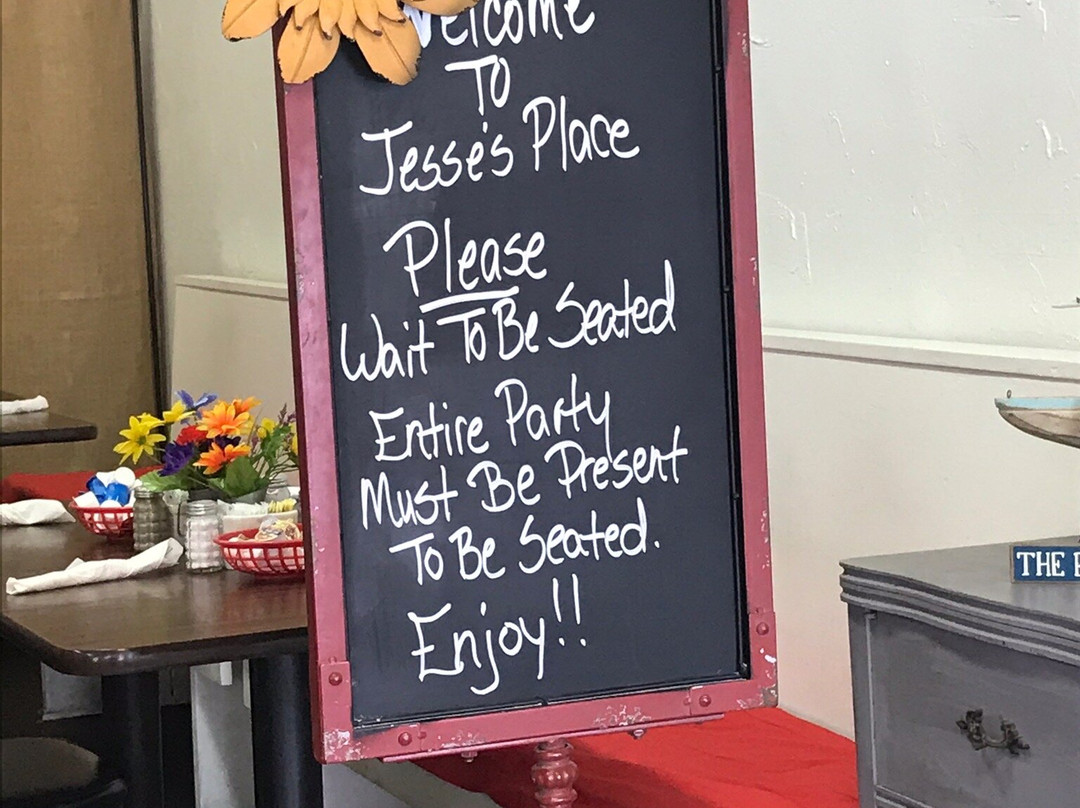 Welcome
To
Jesse's Place
Please
Wait To Be Seated
Entire Party
Must Be Present
To Be Seated.
Enjoy!!
THE